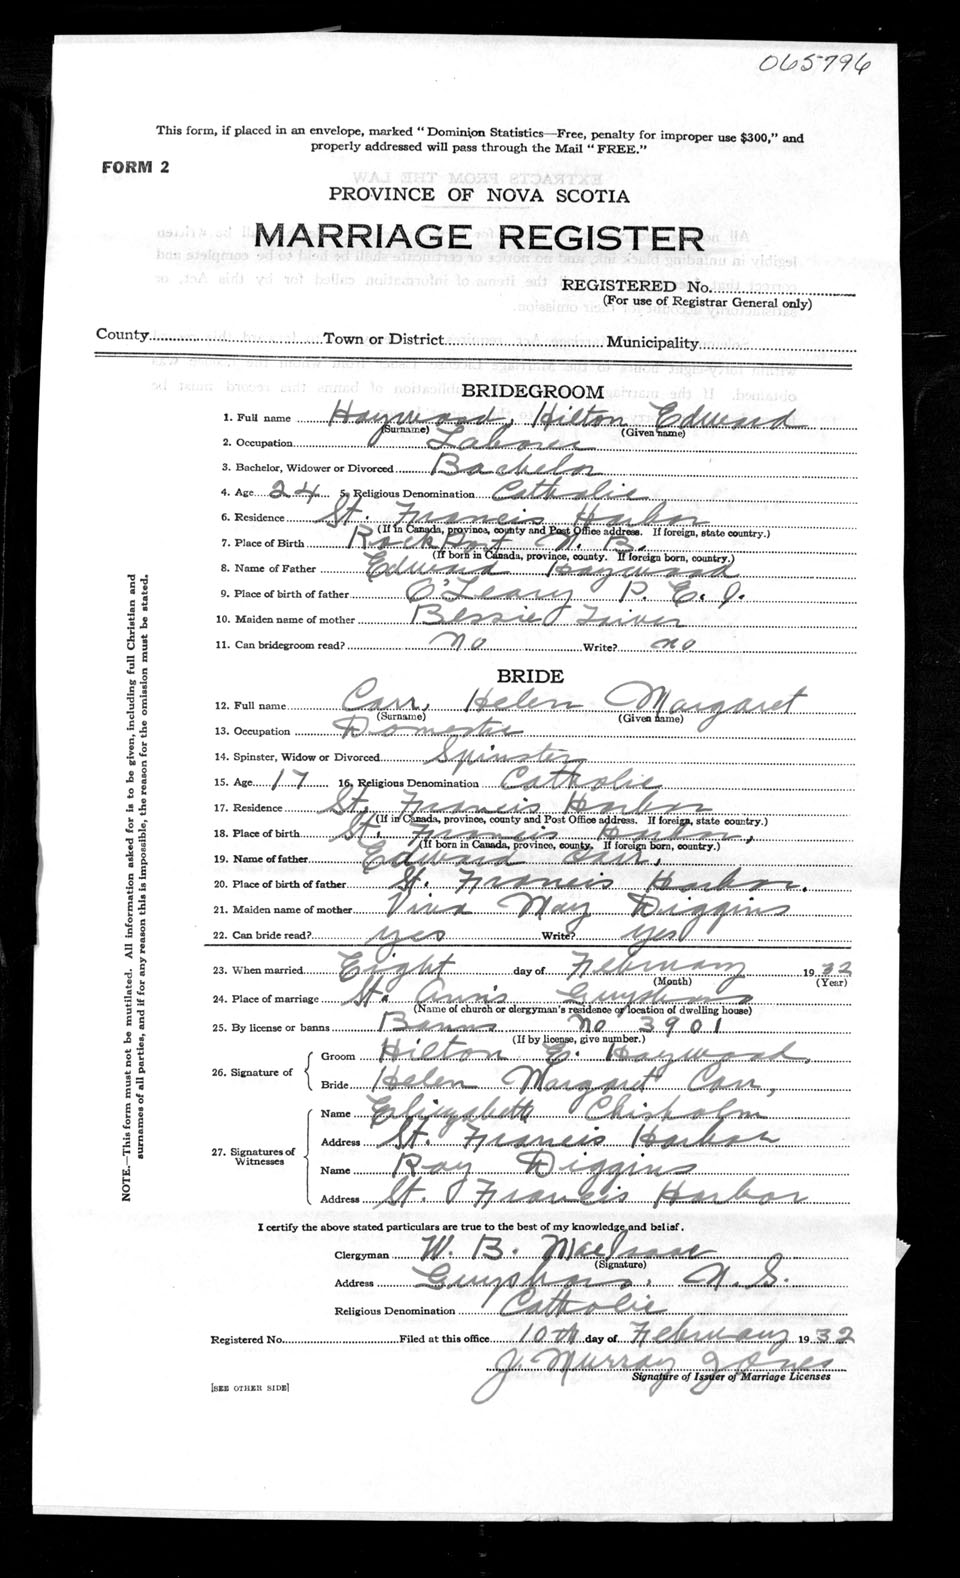 065796
This form, if placed in an envelope, marked "Dominion Statistics—Free, penalty for improper use $300," and
properly addressed will pass through the Mail "FREE."
FORM 2
PROVINCE OF NOVA SCOTIA
MARRIAGE REGISTER
REGISTERED No.
(For use of Registrar General only)
County Town or District Municipality
BRIDEGROOM
1. Full name Haywood, Hilton Edward
(Surname) (Given name)
2. Occupation Laborer
3. Bachelor, Widower or Divorced Bachelor
4. Age 24 5. Religious Denomination Catholic
6. Residence St. Francis Harbor
(If in Canada, province, county and Post Office address. If foreign, state country.)
7. Place of Birth Rockport N. B.
(If born in Canada, province, county. If foreign born, country.)
8. Name of Father Edward Haywood
9. Place of birth of father O'Leary P. E. I.
10. Maiden name of mother Bessie
11. Can bridegroom read? no Write? no
BRIDE
12. Full name Carr, Helen Margaret
(Surname) (Given name)
13. Occupation Domestic
14. Spinster, Widow or Divorced Spinster
15. Age 17 16. Religious Denomination Catholic
17. Residence St. Francis Harbor
(If in Canada, province, county and Post Office address. If foreign, state country.)
18. Place of birth St. Francis Harbor,
(If born in Canada, province, county. If foreign born, country.)
19. Name of father Edward Carr,
20. Place of birth of father St. Francis Harbor.
21. Maiden name of mother May Diggins
22. Can bride read? yes Write? yes
23. When married Eight day of February 1932
(Month) (Year)
24. Place of marriage St. Ann's Guysboro
(Name of church or clergyman's residence or location of dwelling house)
25. By license or banns Banns no 3901
(If by license, give number.)
26. Signature of Groom Hilton E. Haywood,
Bride Helen Margaret Carr,
27. Signatures of Witnesses Name Elizabeth Chisholm
Address St. Francis Harbor
Name Ray Diggins
Address St. Francis Harbor
I certify the above stated particulars are true to the best of my knowledge and belief.
Clergyman W. B. MacIsaac
(Signature)
Address Guysboro, N. S.
Religious Denomination Catholic
Registered No. Filed at this office 10th day of February 1932
J. Murray Jones
Signature of Issuer of Marriage Licenses
[SEE OTHER SIDE]
NOTE.—This form must not be mutilated. All information asked for is to be given, including full Christian and
surnames of all parties, and if for any reason this is impossible, the reason for the omission must be stated.